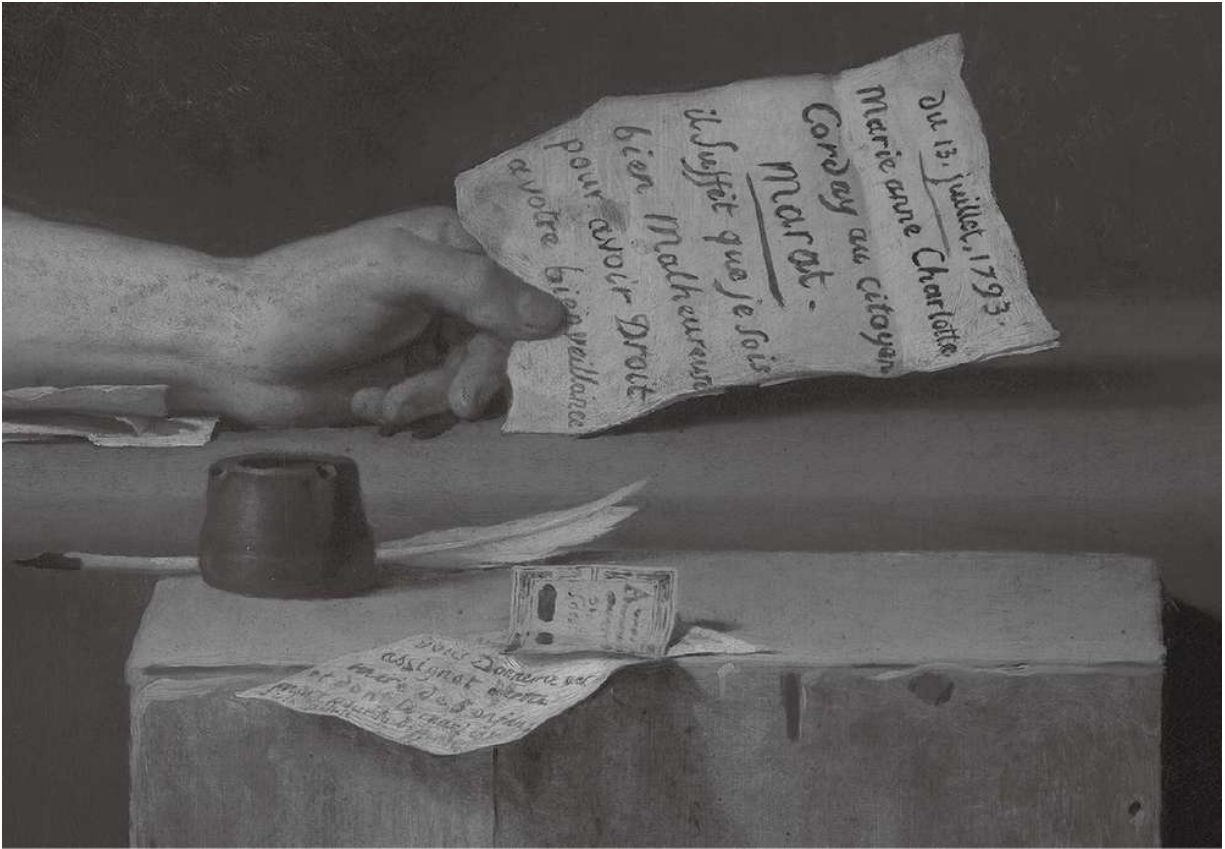 du 13. juillet, 1793.
Marie anne Charlotte
Corday au citoyen
Marat.
il Suffit que je sois
bien Malheureuse
pour avoir Droit
a votre bienveillance
vous Donnerez cet
assignat
mere de 5 enfans
et dont le